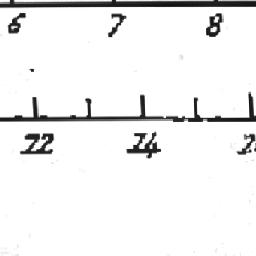 6 7 8
22 24